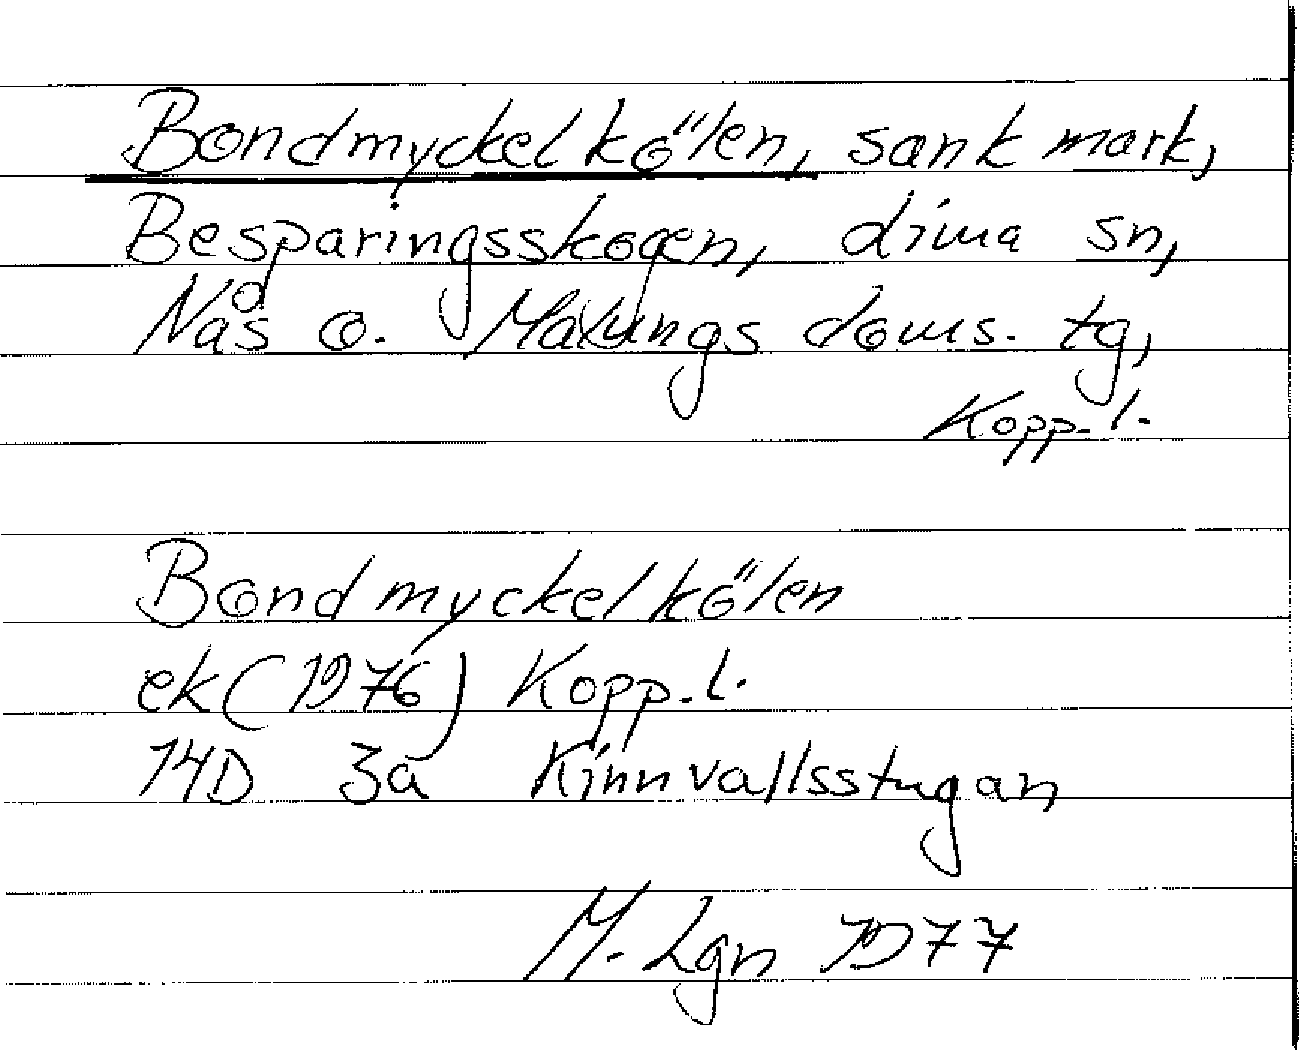 Bondmyckelkölen, sank mark,
Besparingsskogen, Lima sn,
Nås o. Malungs doms. tg,
Kopp. l.
Bondmyckelkölen
ek (1976) Kopp. l.
14D 3a Kinnvallsstugan
M. Lgn 1977